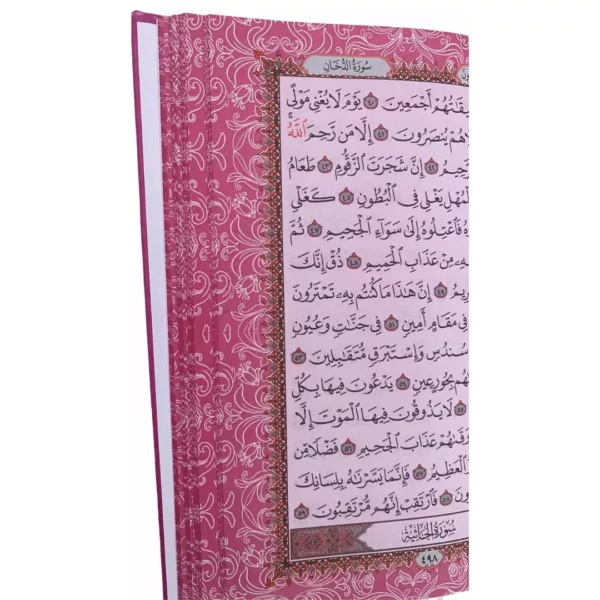 سُورَةُ الدُّخَانِ
يقَٰتُهُمْ أَجْمَعِينَ ٤٠ يَوْمَ لَا يُغْنِي مَوْلًى
هُمْ يُنصَرُونَ ٤١ إِلَّا مَن رَّحِمَ ٱللَّهُ
رَّحِيمُ ٤٢ إِنَّ شَجَرَتَ ٱلزَّقُّومِ ٤٣ طَعَامُ
ٱلْمُهْلِ يَغْلِي فِي ٱلْبُطُونِ ٤٥ كَغَلْيِ
هُ فَٱعْتِلُوهُ إِلَىٰ سَوَآءِ ٱلْجَحِيمِ ٤٧ ثُمَّ
هِۦ مِنْ عَذَابِ ٱلْحَمِيمِ ٤٨ ذُقْ إِنَّكَ
رِيمُ ٤٩ إِنَّ هَٰذَا مَا كُنتُم بِهِۦ تَمْتَرُونَ
فِي مَقَامٍ أَمِينٍ ٥١ فِي جَنَّٰتٍ وَعُيُونٍ
سُندُسٍ وَإِسْتَبْرَقٍ مُّتَقَٰبِلِينَ ٥٣
هُم بِحُورٍ عِينٍ ٥٤ يَدْعُونَ فِيهَا بِكُلِّ
٥٥ لَا يَذُوقُونَ فِيهَا ٱلْمَوْتَ إِلَّا
وَقَىٰهُمْ عَذَابَ ٱلْجَحِيمِ ٥٦ فَضْلًا مِّن
ٱلْعَظِيمُ ٥٧ فَإِنَّمَا يَسَّرْنَٰهُ بِلِسَانِكَ
ونَ ٥٨ فَٱرْتَقِبْ إِنَّهُم مُّرْتَقِبُونَ ٥٩
سُورَةُ الجَاثِيَةِ
٤٩٨